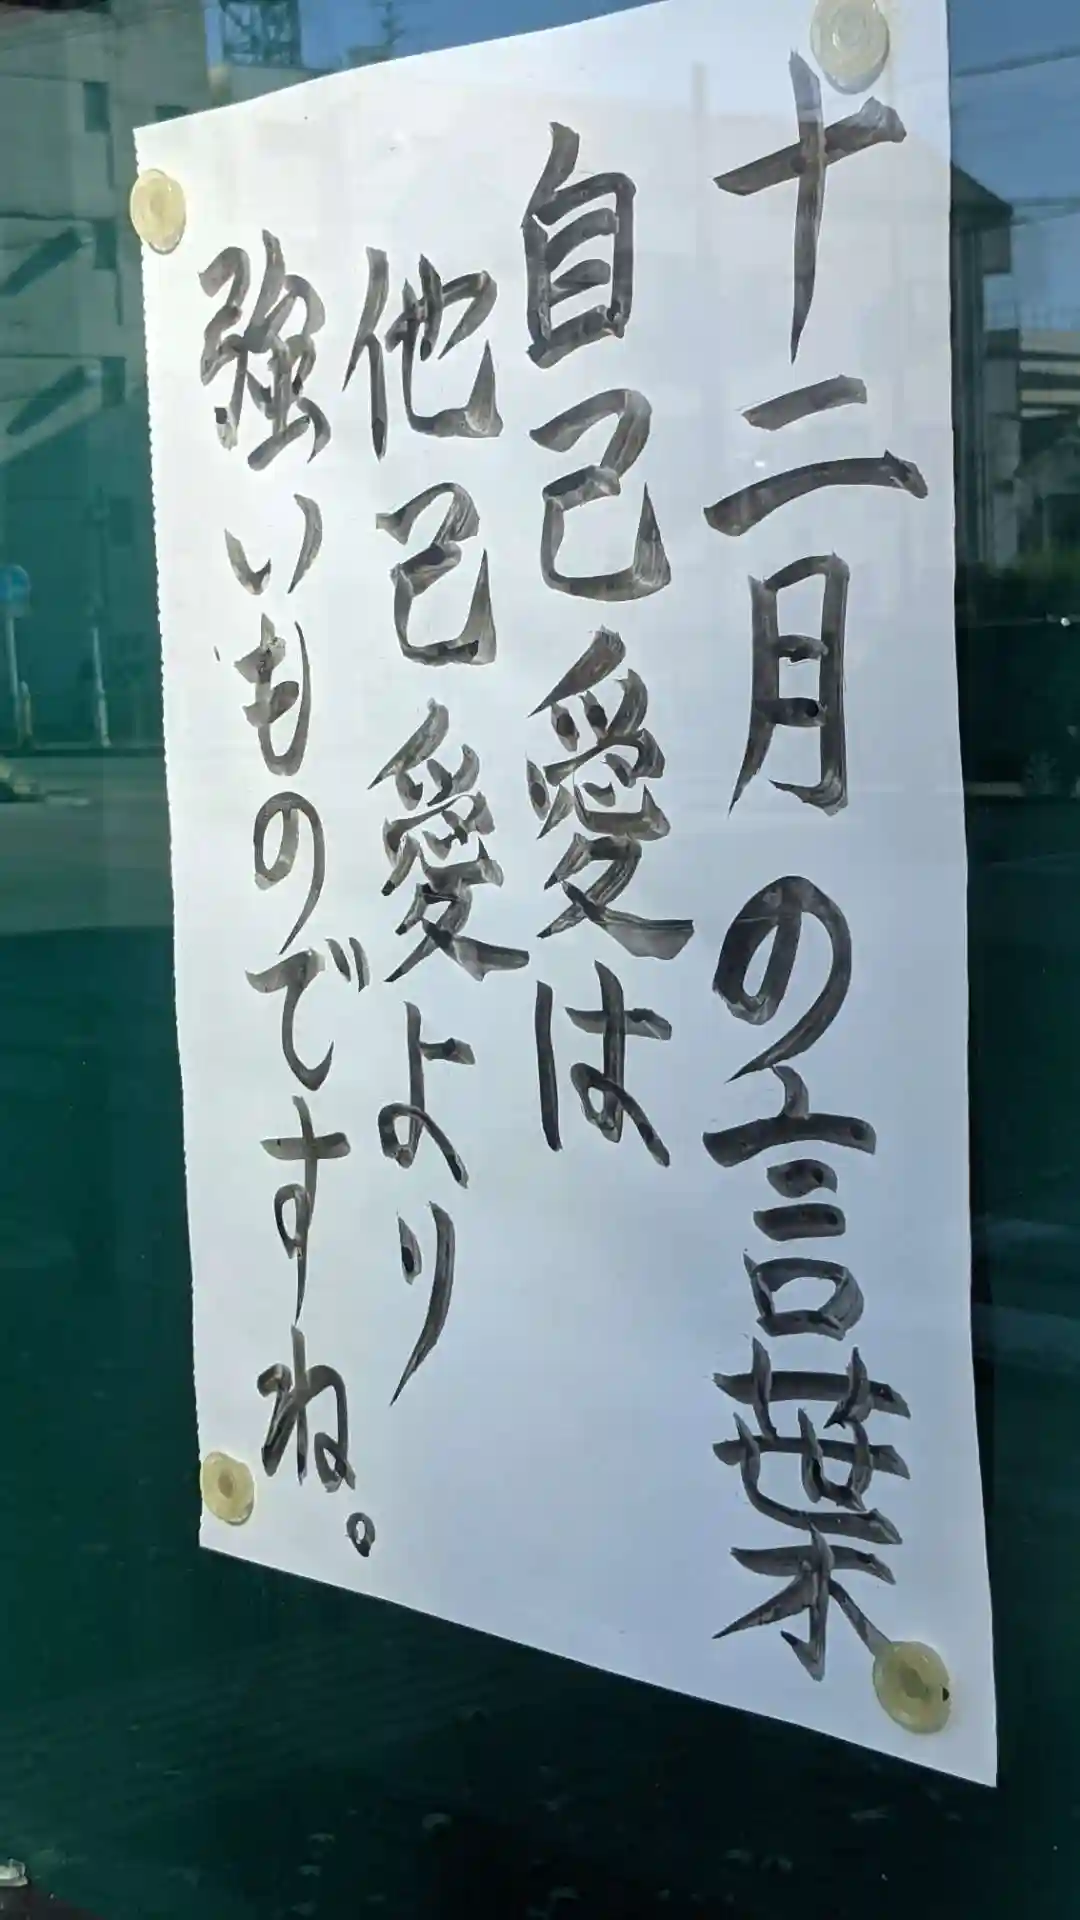 十二月の言葉
自己愛は
他己愛より
強いものですね。